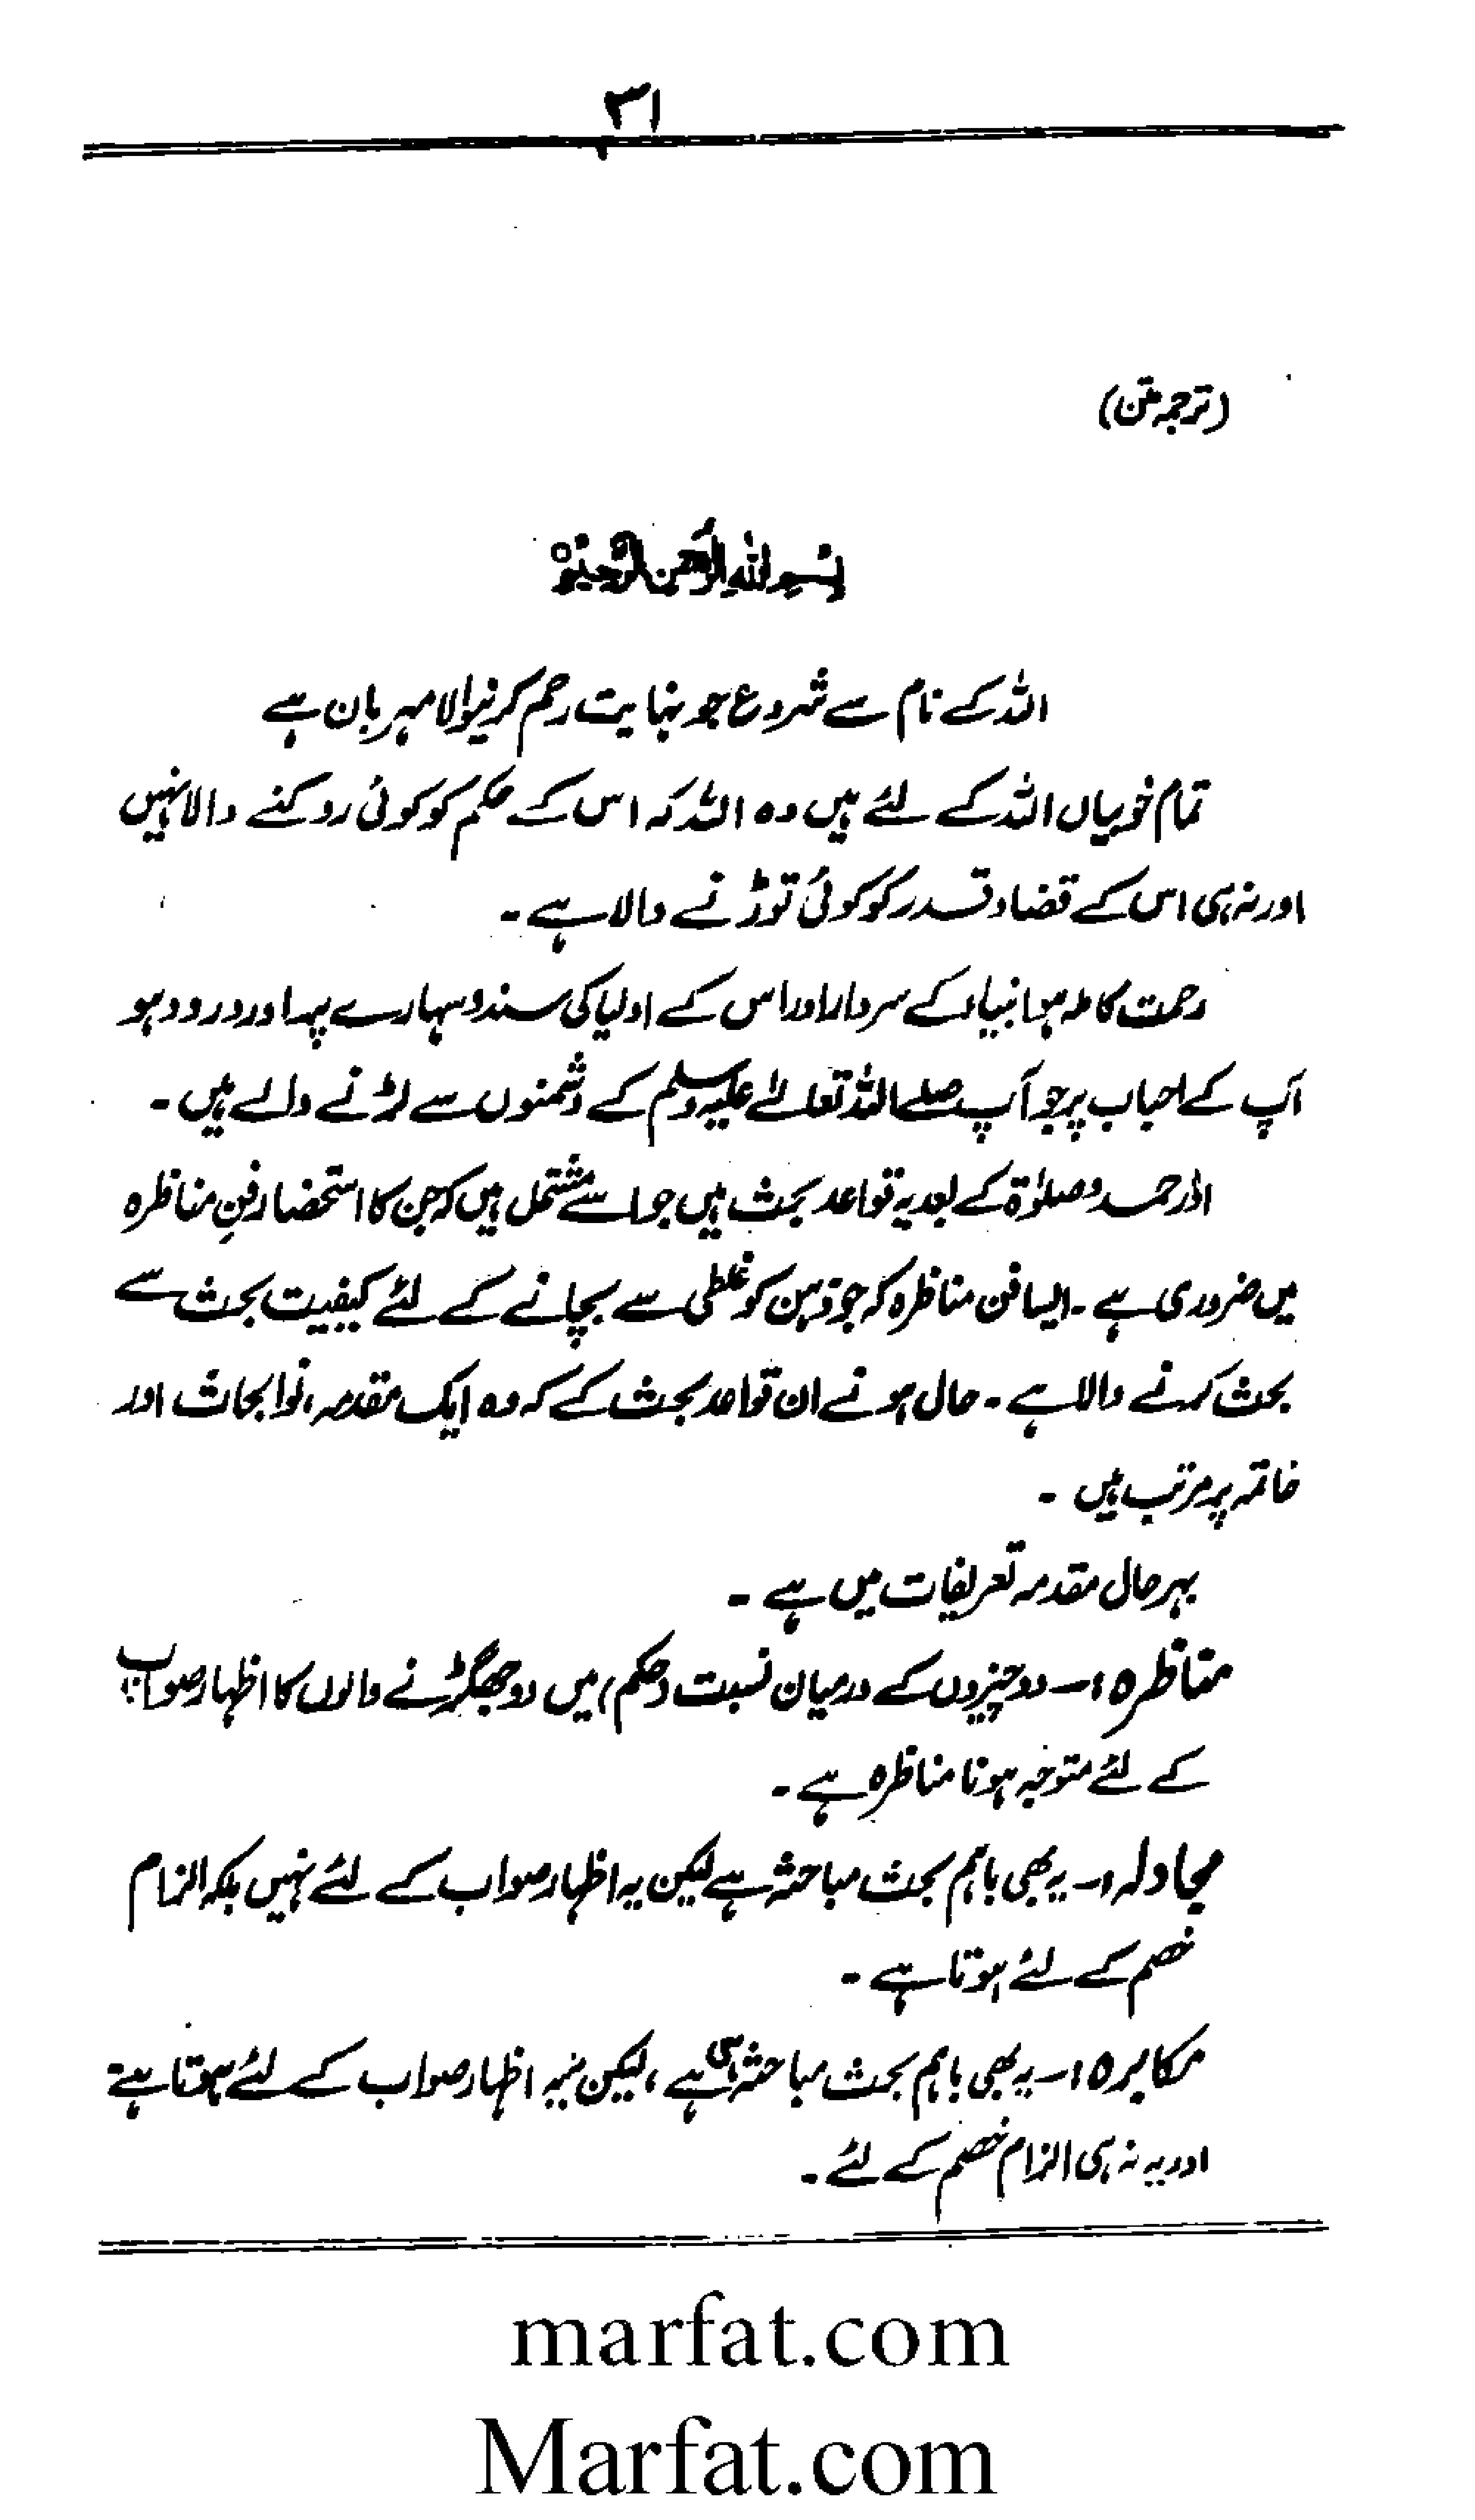 ۳۱
(ترجمہ متن)
بسم اللہ الرحمن الرحیم
اللہ کے نام سے شروع جو نہایت رحم کرنیوالا مہربان ہے
تمام خوبیاں اللہ کے لئے ہیں وہ اللہ کہ اس کے حکم کو کوئی روکنے والا نہیں
اور نہ ہی اس کے قضا و قدر کو کوئی توڑنے والا ہے ۔
رحمت کاملہ ہو انبیاء کے سردار اور اس کے اولیا کی سند و سہارے پہ اور درود ہو
آپ کے احباب پر جو آپ صلے اللہ تعالےٰ علیہ وسلم کے دشمنوں سے لڑنے والے ہیں ۔
اور حمد و صلوٰۃ کے بعد یہ قواعد بحث ہیں جو اسے مشتمل ہیں کہ جن کا استحضار فنِ مناظرہ
میں ضروری ہے ۔ ایسا فن مناظرہ کہ جو ذہن کو غلطی سے بچانے کے لئے کیفیت بحث سے
بحث کرنے والا ہے ۔ حال ہونے ان قواعد بحث کے کہ وہ ایک مقدمہ ، نو ابحاث اور
خاتمہ پر مرتب ہیں ۔
بہرحال مقدمہ تعریفات میں ہے ۔
مناظرہ :۔ دو چیزوں کے درمیان نسبت (حکم) میں دو جھگڑنے والوں کا اظہار صواب
کے لئے متوجہ ہونا مناظرہ ہے ۔
مجادلہ :۔ یہ بھی باہم بحث مباحثہ ہے لیکن یہ اظہار صواب کے لئے نہیں بلکہ الزام
خصم کے لئے ہوتا ہے ۔
مکابرہ :۔ یہ بھی باہم بحث مباحثہ ہی ہے ، لیکن نہ یہ اظہار صواب کے لئے ہوتا ہے
اور یہ نہ ہی الزام خصم کے لئے ۔
marfat.com
Marfat.com